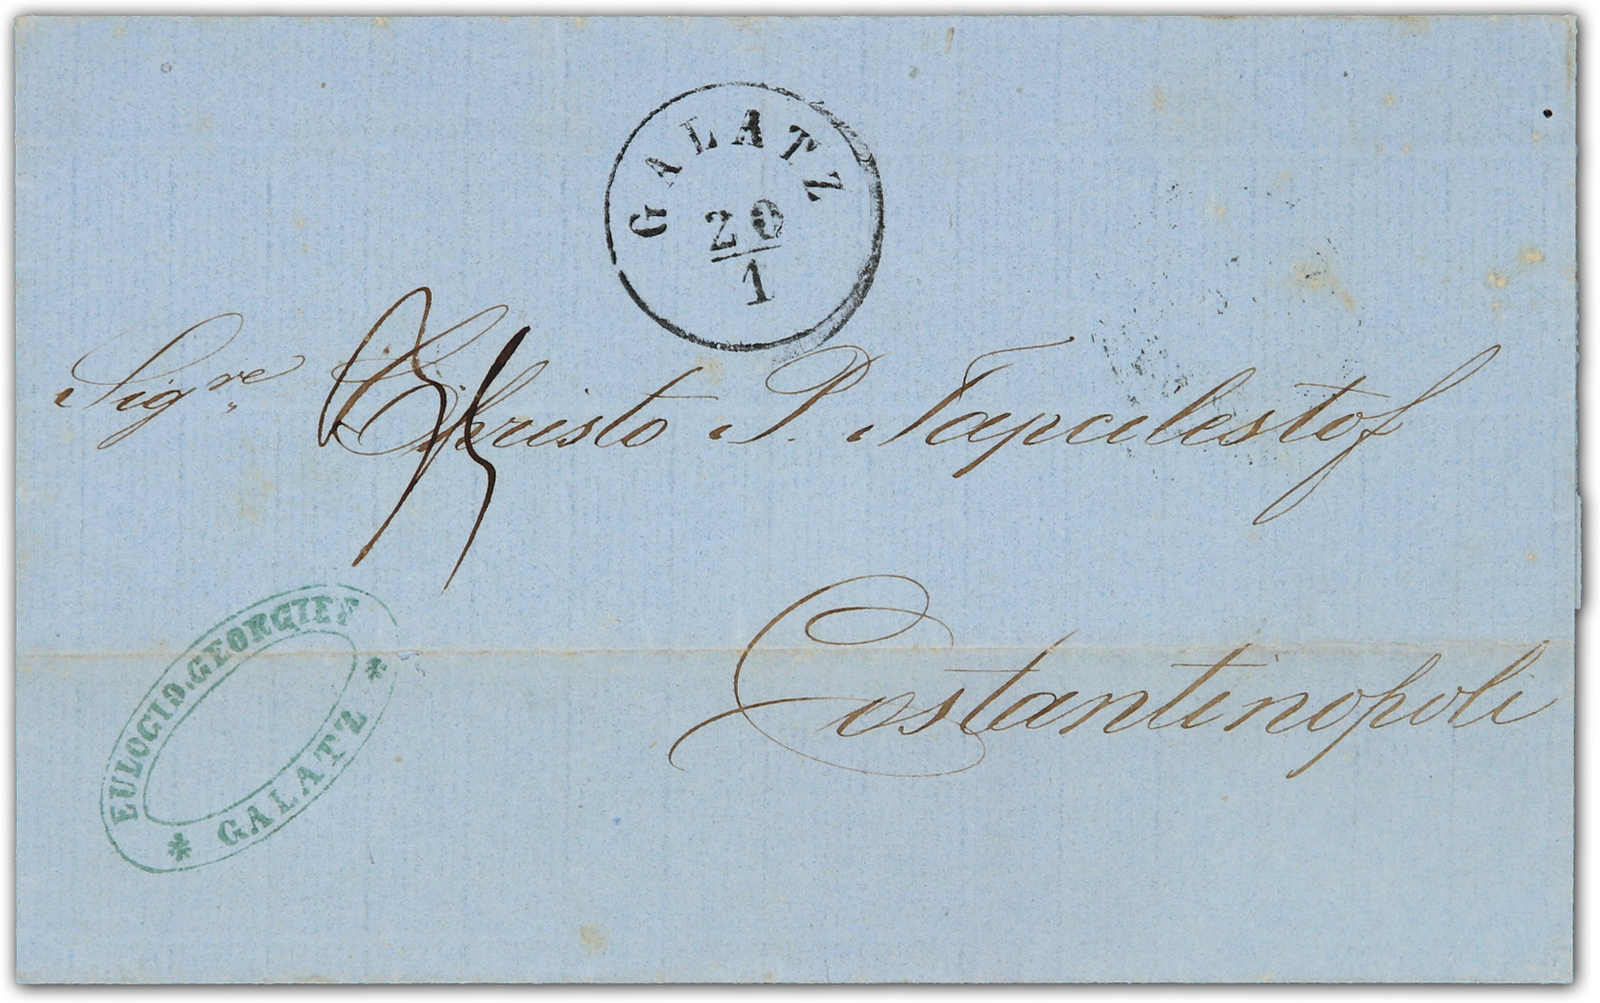 GALATZ
20
1
Sigre Christo P. Tapcilestof
Costantinopoli
EULOGIO.GEORGIEF
* GALATZ *